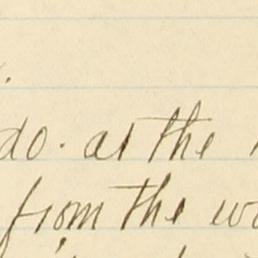 do. at the
from the